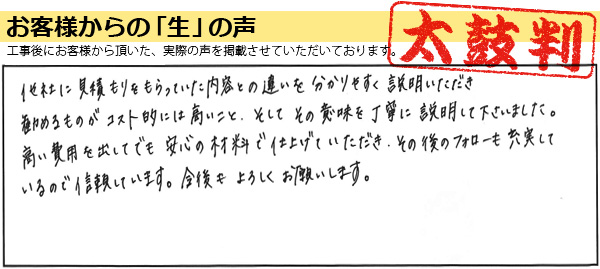 お客様からの「生」の声
太鼓判
工事後にお客様から頂いた、実際の声を掲載させていただいております。
他社に見積もりをもらっていた内容との違いを分かりやすく説明いただき
勧めるものがコスト的には高いこと、そしてその意味を丁寧に説明して下さいました。
高い費用を出してでも安心の材料で仕上げていただき、その後のフォローも充実して
いるので信頼しています。今後もよろしくお願いします。